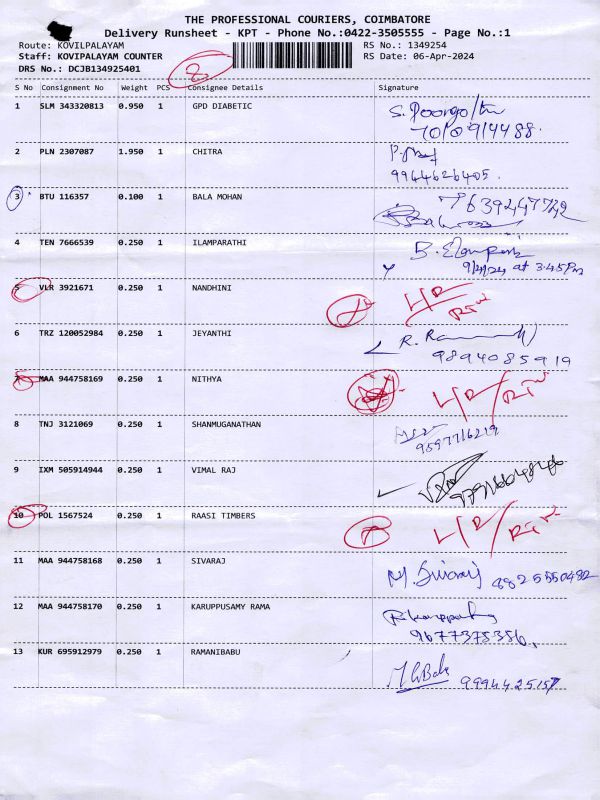 THE PROFESSIONAL COURIERS, COIMBATORE
Delivery Runsheet - KPT - Phone No.:0422-3505555 - Page No.:1
Route: KOVILPALAYAM RS No.: 1349254
Staff: KOVIPALAYAM COUNTER RS Date: 06-Apr-2024
DRS No.: DCJB134925401
S No Consignment No Weight PCS Consignee Details Signature
1 SLM 343320813 0.950 1 GPD DIABETIC
7010914488.
2 PLN 2307087 1.950 1 CHITRA
9944626405.
3 BTU 116357 0.100 1 BALA MOHAN 7639247742
4 TEN 7666539 0.250 1 ILAMPARATHI
at 3:45 Pm
5 VLR 3921671 0.250 1 NANDHINI
6 TRZ 120052984 0.250 1 JEYANTHI
9894085919
7 MAA 944758169 0.250 1 NITHYA
8 TNJ 3121069 0.250 1 SHANMUGANATHAN
9597716219
9 IXM 505914944 0.250 1 VIMAL RAJ
10 POL 1567524 0.250 1 RAASI TIMBERS
11 MAA 944758168 0.250 1 SIVARAJ M. Sivaraj 8825550482
12 MAA 944758170 0.250 1 KARUPPUSAMY RAMA
9677375356.
13 KUR 695912979 0.250 1 RAMANIBABU
9994425157